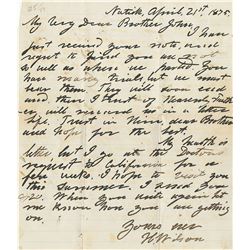 Natick, April 21st 1875
My Very Dear Brother John,
I have
just received your note, and
regret to find you are not
so well as when we parted. You
has many trials, but we must
bear them. They will soon end
with us. I think of dearest
we will
trust in Him, dear Brother
and hope for the best.
My health is
better but I go at the Doctor's
request to California for a
few weeks. I hope to visit you
this Summer. I send you
$20. When you want
me know how you are getting
on.
Yours ever
H Wilson